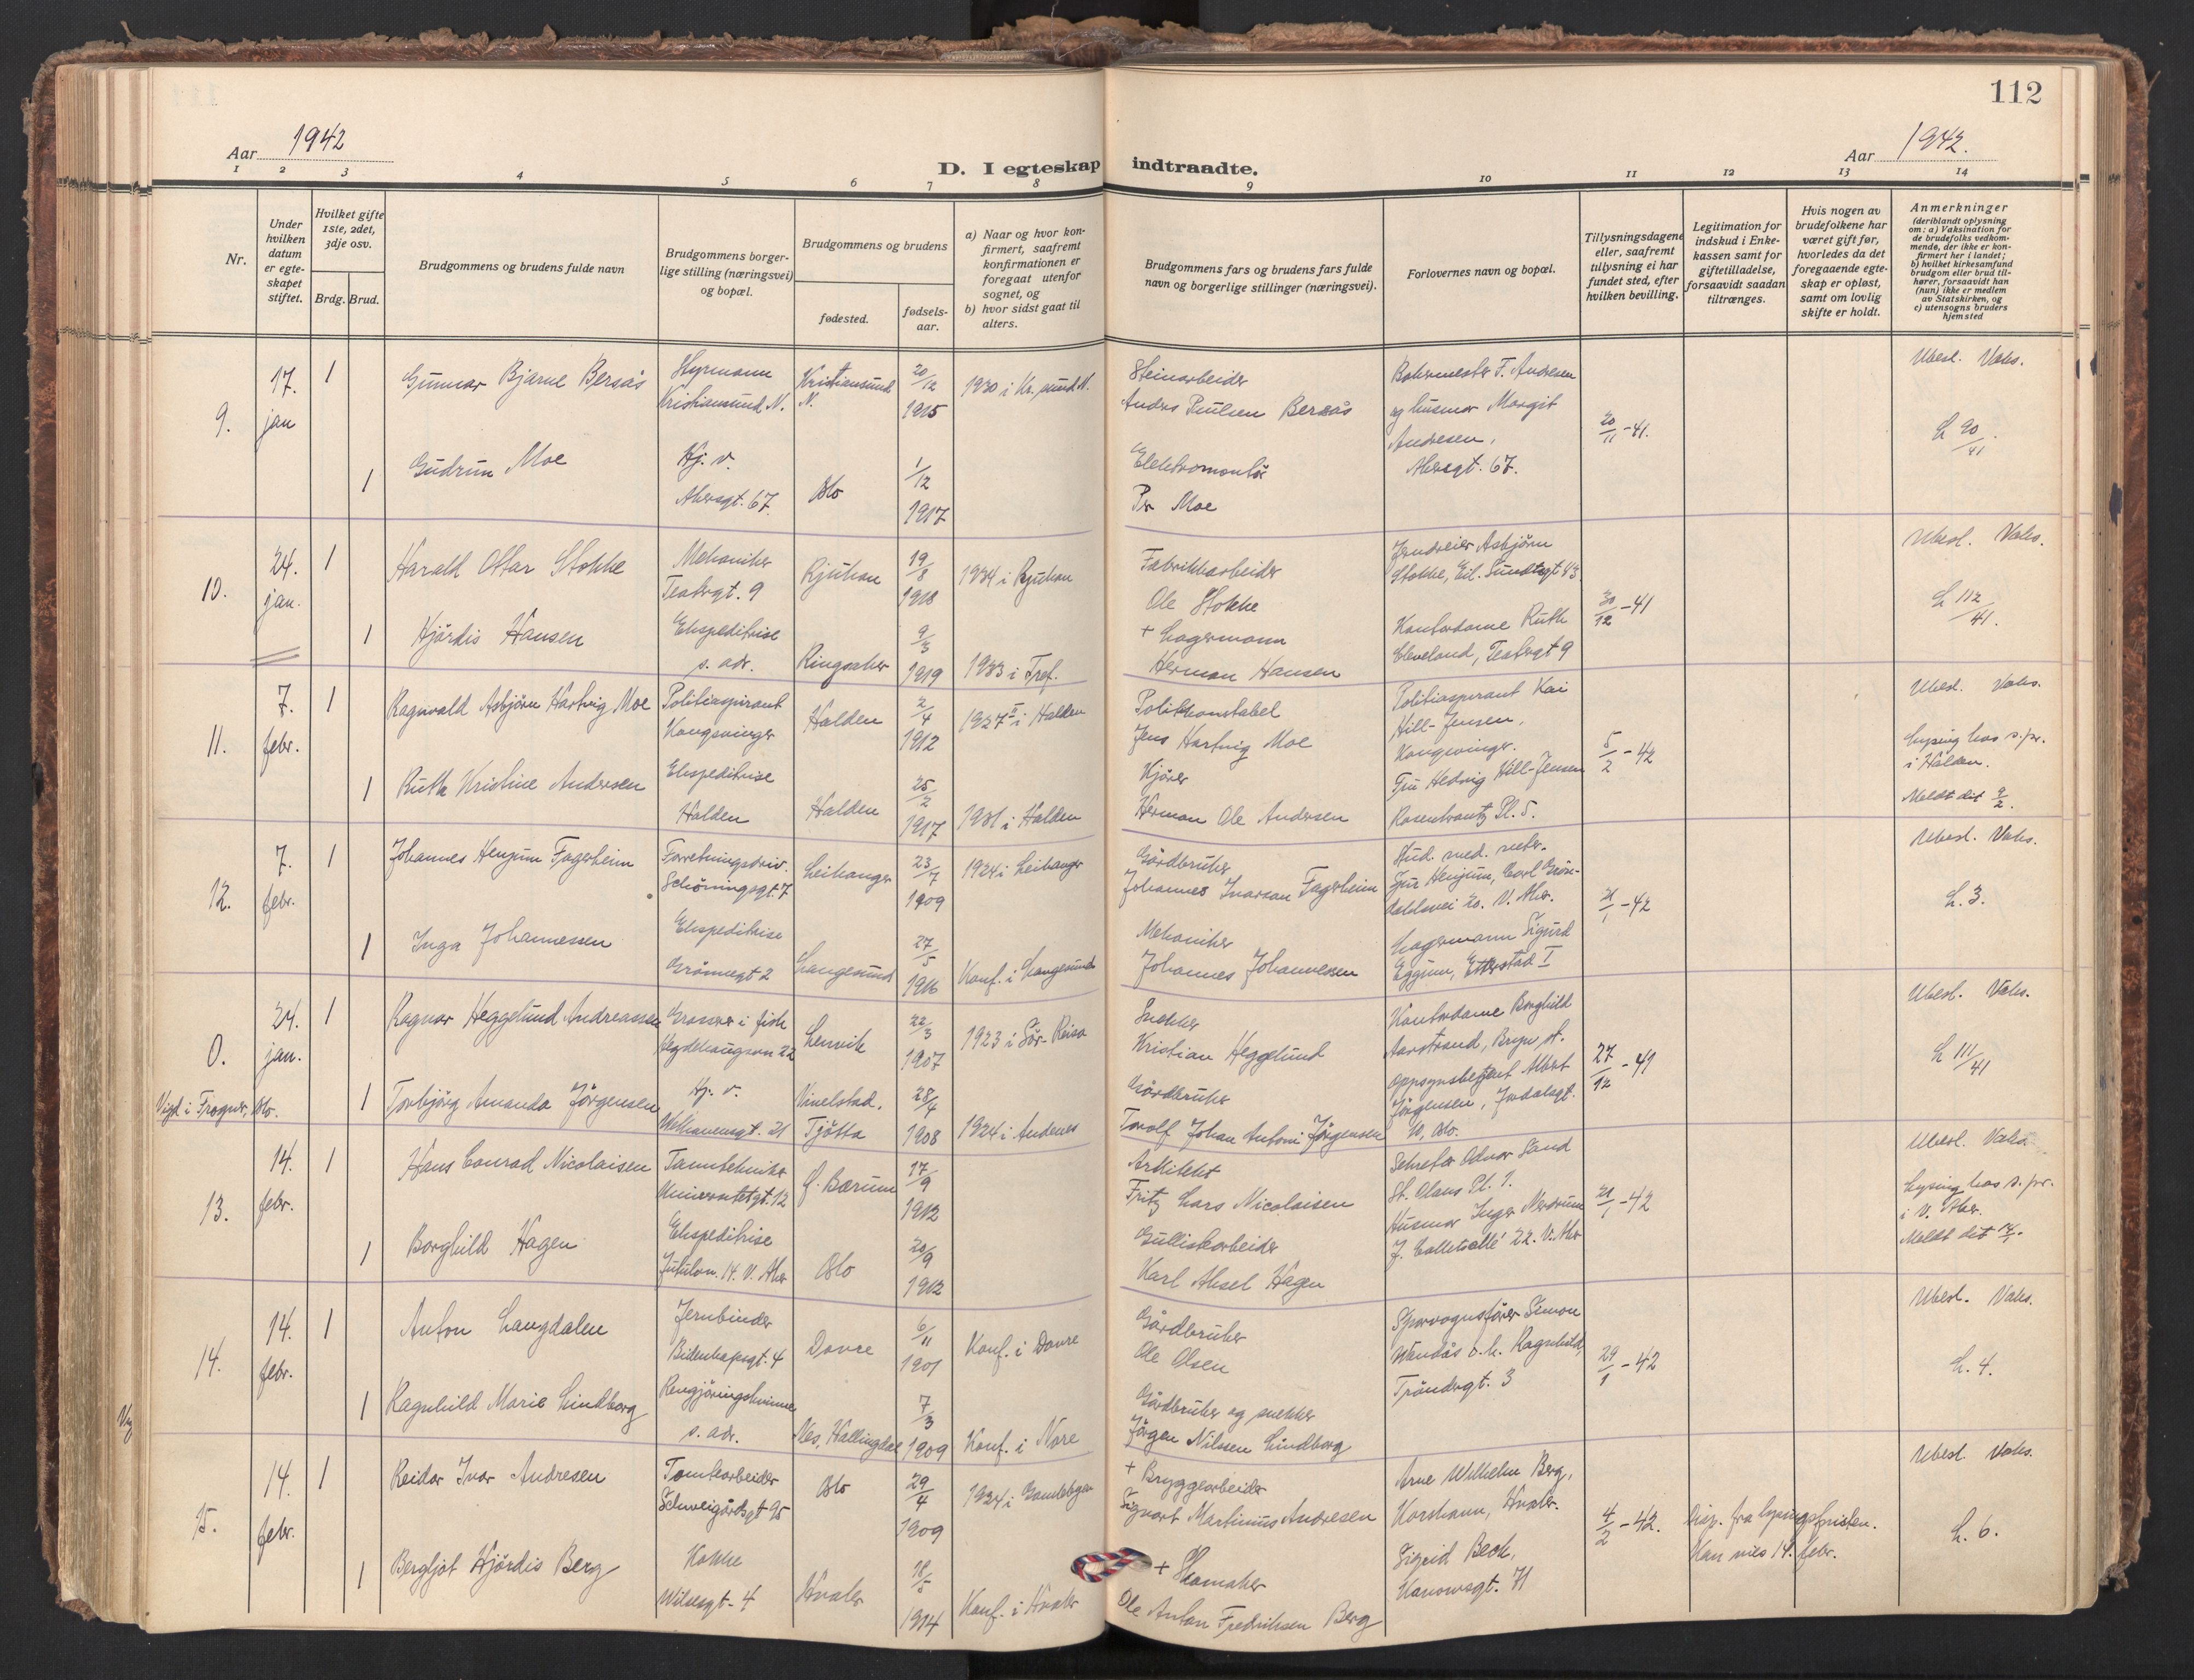 112
Aar 1942
Aar 1942.
D. I egteskap indtraadte.
1 2 3 4 5 6 7 8 9 10 11 12 13 14
Nr.
Under hvilken datum er egte-skapet stiftet.
Hvilket gifte 1ste, 2det, 3dje osv.
Brdg. Brud.
Brudgommens og brudens fulde navn
Brudgommens borger-lige stilling (næringsvei) og bopæl.
Brudgommens og brudens
fødested.
fødsels-aar.
a) Naar og hvor kon-firmert, saafremt konfirmationen er foregaat utenfor sognet, og
b) hvor sidst gaat til alters.
Brudgommens fars og brudens fars fulde navn og borgerlige stillinger (næringsvei).
Forlovernes navn og bopæl.
Tillysningsdagene eller, saafremt tillysning ei har fundet sted, efter hvilken bevilling.
Legitimation for indskud i Enke-kassen samt for giftetilladelse, forsaavidt saadan tiltrænges.
Hvis nogen av brudefolkene har været gift før, hvorledes da det foregaaende egte-skap er opløst, samt om lovlig skifte er holdt.
Anmerkninger
(deriblandt oplysning om: a) Vaksination for de brudefolks vedkom-mende, der ikke er kon-firmert her i landet; b) hvilket kirkesamfund brudgom eller brud til-hører, forsaavidt han (hun) ikke er medlem av Statskirken, og c) utensogns bruders hjemsted
9.
17. jan
1
Gunnar Bjarne Bersås
Hyrmann
Kristiansund N.
Kristiansund N.
20/12 1915
1930 i Kr.sund N.
Steinarbeider
Anders Paulsen Bersås
Bakermester F. Andresen
og husmor Margit
Andresen,
Akersgt. 67.
20/11 -41.
Ubesl. Vaks.
L 90/41.
1
Gudrun Moe
Hj. v.
Akersgt. 67.
Oslo
1/12 1917
Elektromontør
Per Moe
10.
24. jan.
1
Harald Ottar Stokke
Mekaniker
Teatergt. 9
Rjukan
19/8 1918
1934 i Rjukan
Fabrikkarbeider
Ole Stokke
Asbjørn
Stokke, Eil. Sundtsgt 43
30/12 -41
Ubesl. Vaks.
L 112/41.
1
Hjørdis Hansen
Ekspeditrise
s. adr.
Ringsaker
9/3 1919
1933 i Tref.
+ Lagermann
Herman Hansen
Kontordame Ruth
Cleveland, Teatergt 9
11.
7. febr.
1
Ragnvald Asbjørn Hartvig Moe
Politiaspirant
Kongsvinger
Halden
2/4 1912
1927 i Halden
Politikonstabel
Jens Hartvig Moe
Politiaspirant Kai
Hill-Jensen,
Kongsvinger.
Fru Hedvig Hill-Jensen
Rosenkrantz Pl. 5.
5/2 -42
Ubesl. Vaks.
Lysing hos s.pr.
i Halden.
Meldt dit 9/2.
1
Ruth Kristine Andersen
Ekspeditrise
Halden
Halden
25/2 1917
1931 i Halden
Kjører
Herman Ole Andersen
12.
7. febr.
1
Johannes Henjum Fagerheim
Forretningsdriv.
Schøningsgt. 7
Leikanger
23/7 1909
1924 i Leikanger
Gårdbruker
Johannes Ivarson Fagerheim
Stud. med.
Henjum, Carl Grøn-
V. Aker.
21/1 -42
Ubesl. Vaks.
L. 3.
1
Inga Johannessen
Ekspeditrise
Grønnegt 2
Langesund
27/5 1916
Konf. i Langesund
Mekaniker
Johannes Johannessen
Lagermann Sigurd
Eggum, Etterstad I
0.
24. jan.
1
Ragnar Heggelund Andreassen
Grosser i fisk
Hegdehaugsvn 22
Lenvik
22/3 1907
1923 i Sør-Reisa
Snekker
Kristian Heggelund
Kontordame Borghild
Aarstrand, Bryn st.
Oppsynsbetjent Albert
Jørgensen, Jordalsgt.
10, Oslo.
27/12 -41
Ubesl. Vaks.
L 111/41
Vigd i Frogner, Oslo.
1
Torbjørg Amanda Jørgensen
Hj. v.
Welhavensgt. 21
Vinelstad,
Tjøtta
28/4 1908
1924 i Andenes
Gårdbruker
Torolf Johan Antoni Jørgensen
13.
14. febr.
1
Hans Conrad Nicolaisen
Tanntekniker
Universitetsgt. 12
Ø. Bærum
17/9 1912
Arkitekt
Fritz Lars Nicolaisen
Sekretær Odvar Sand
St. Olavs Pl. 1.
Husmor Inger Nerdrum
J. Colletsalle 22. V. Aker
21/1 -42
Ubesl. Vaks.
Lysing hos s.pr.
i V. Aker.
1
Borghild Hagen
Ekspeditrise
Jutulvn. 14. V. Aker
Oslo
20/9 1912
Gullistearbeider
Karl Aksel Hagen
14.
14. febr.
1
Anton Langdalen
Jernbinder
Bidenkapsgt. 4
Dovre
6/11 1901
Konf. i Dovre
Gårdbruker
Ole Olsen
Sporvognsfører Simon
Wandås o.h. Ragnhild,
Trøndergt. 3
29/1 -42
Ubesl. Vaks.
L. 4.
1
Ragnhild Marie Lindborg
Rengjøringskvinne
s. adr.
Nes, Hallingdal
7/3 1909
Konf. i Nore
Gårdbruker og snekker
Jørgen Nilssen Lindborg
15.
14. febr.
1
Reidar Ivar Andresen
Tomtearbeider
Schweigårdsgt 95
Oslo
29/4 1909
1924 i Gamlebyen
+ Bryggearbeider
Sigvart Martinius Andresen
Arne Wilhelm Berg,
Korshavn, Hvaler.
4/2 -42.
Disp. fra lysingsfristen.
Kan vies 14. febr.
Ubesl. Vaks.
L. 6.
1
Bergljot Hjørdis Berg
Kokke
Wilsesgt. 4
Hvaler
18/5 1914
Konf. i Hvaler
+ Skomaker
Ole Anton Fredriksen Berg
Sigrid Beck,
Kanowsgt. 71